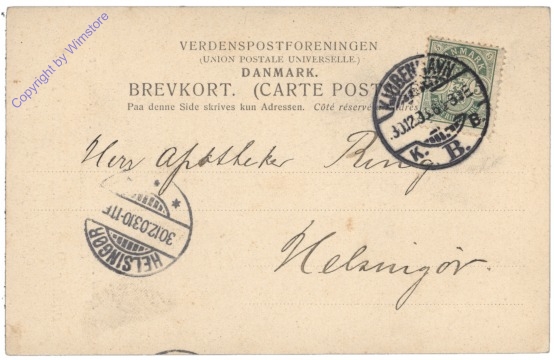 Copyright by Wimstore
VERDENSPOSTFORENINGEN
(UNION POSTALE UNIVERSELLE.)
DANMARK.
BREVKORT. (CARTE POST
Paa denne Side skrives kun Adressen. Côté réservé
DANMARK
KJØBENHAVN
K. B.
Herr Apotheker Ring
HELSINGØR
30.12.03.10-11F
Helsingör.